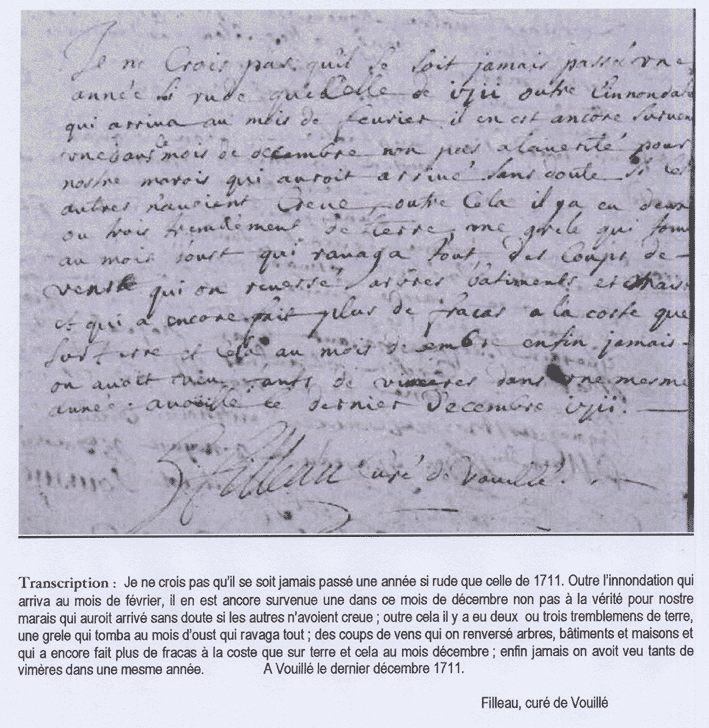 Je ne Crois pas qu'il se soit jamais passé vne
année si rude que celle de vjii outre l'innondati
qui arriva au mois de fevrier il en est ancore surven
vne dans mois de decembre non pas alaverité pour
nostre marois qui auroit arrivé sans doute si les
autres n'avoient Creüe, outre Cela il ya eu deux
ou trois tremblement de terre, vne grele qui tom
au mois d'oust qui ravaga tout, des Coups de
vents qui on renversé arbres bâtiments et mais
et qui a encore fait plus de fracas a la coste que
sur terre et cela au mois decembre enfin jamais
on avoit veu tants de vimeres dans vne mesme
année. avoüillé ce dernier decembre vjii.
Filleau Curé de Voüillé.
Transcription : Je ne crois pas qu'il se soit jamais passé une année si rude que celle de 1711. Outre l'innondation qui
arriva au mois de février, il en est ancore survenue une dans ce mois de décembre non pas à la vérité pour nostre
marais qui auroit arrivé sans doute si les autres n'avoient creue ; outre cela il y a eu deux ou trois tremblemens de terre,
une grele qui tomba au mois d'oust qui ravaga tout ; des coups de vens qui on renversé arbres, bâtiments et maisons et
qui a encore fait plus de fracas à la coste que sur terre et cela au mois décembre ; enfin jamais on avoit veu tants de
vimères dans une mesme année. A Vouillé le dernier décembre 1711.
Filleau, curé de Vouillé